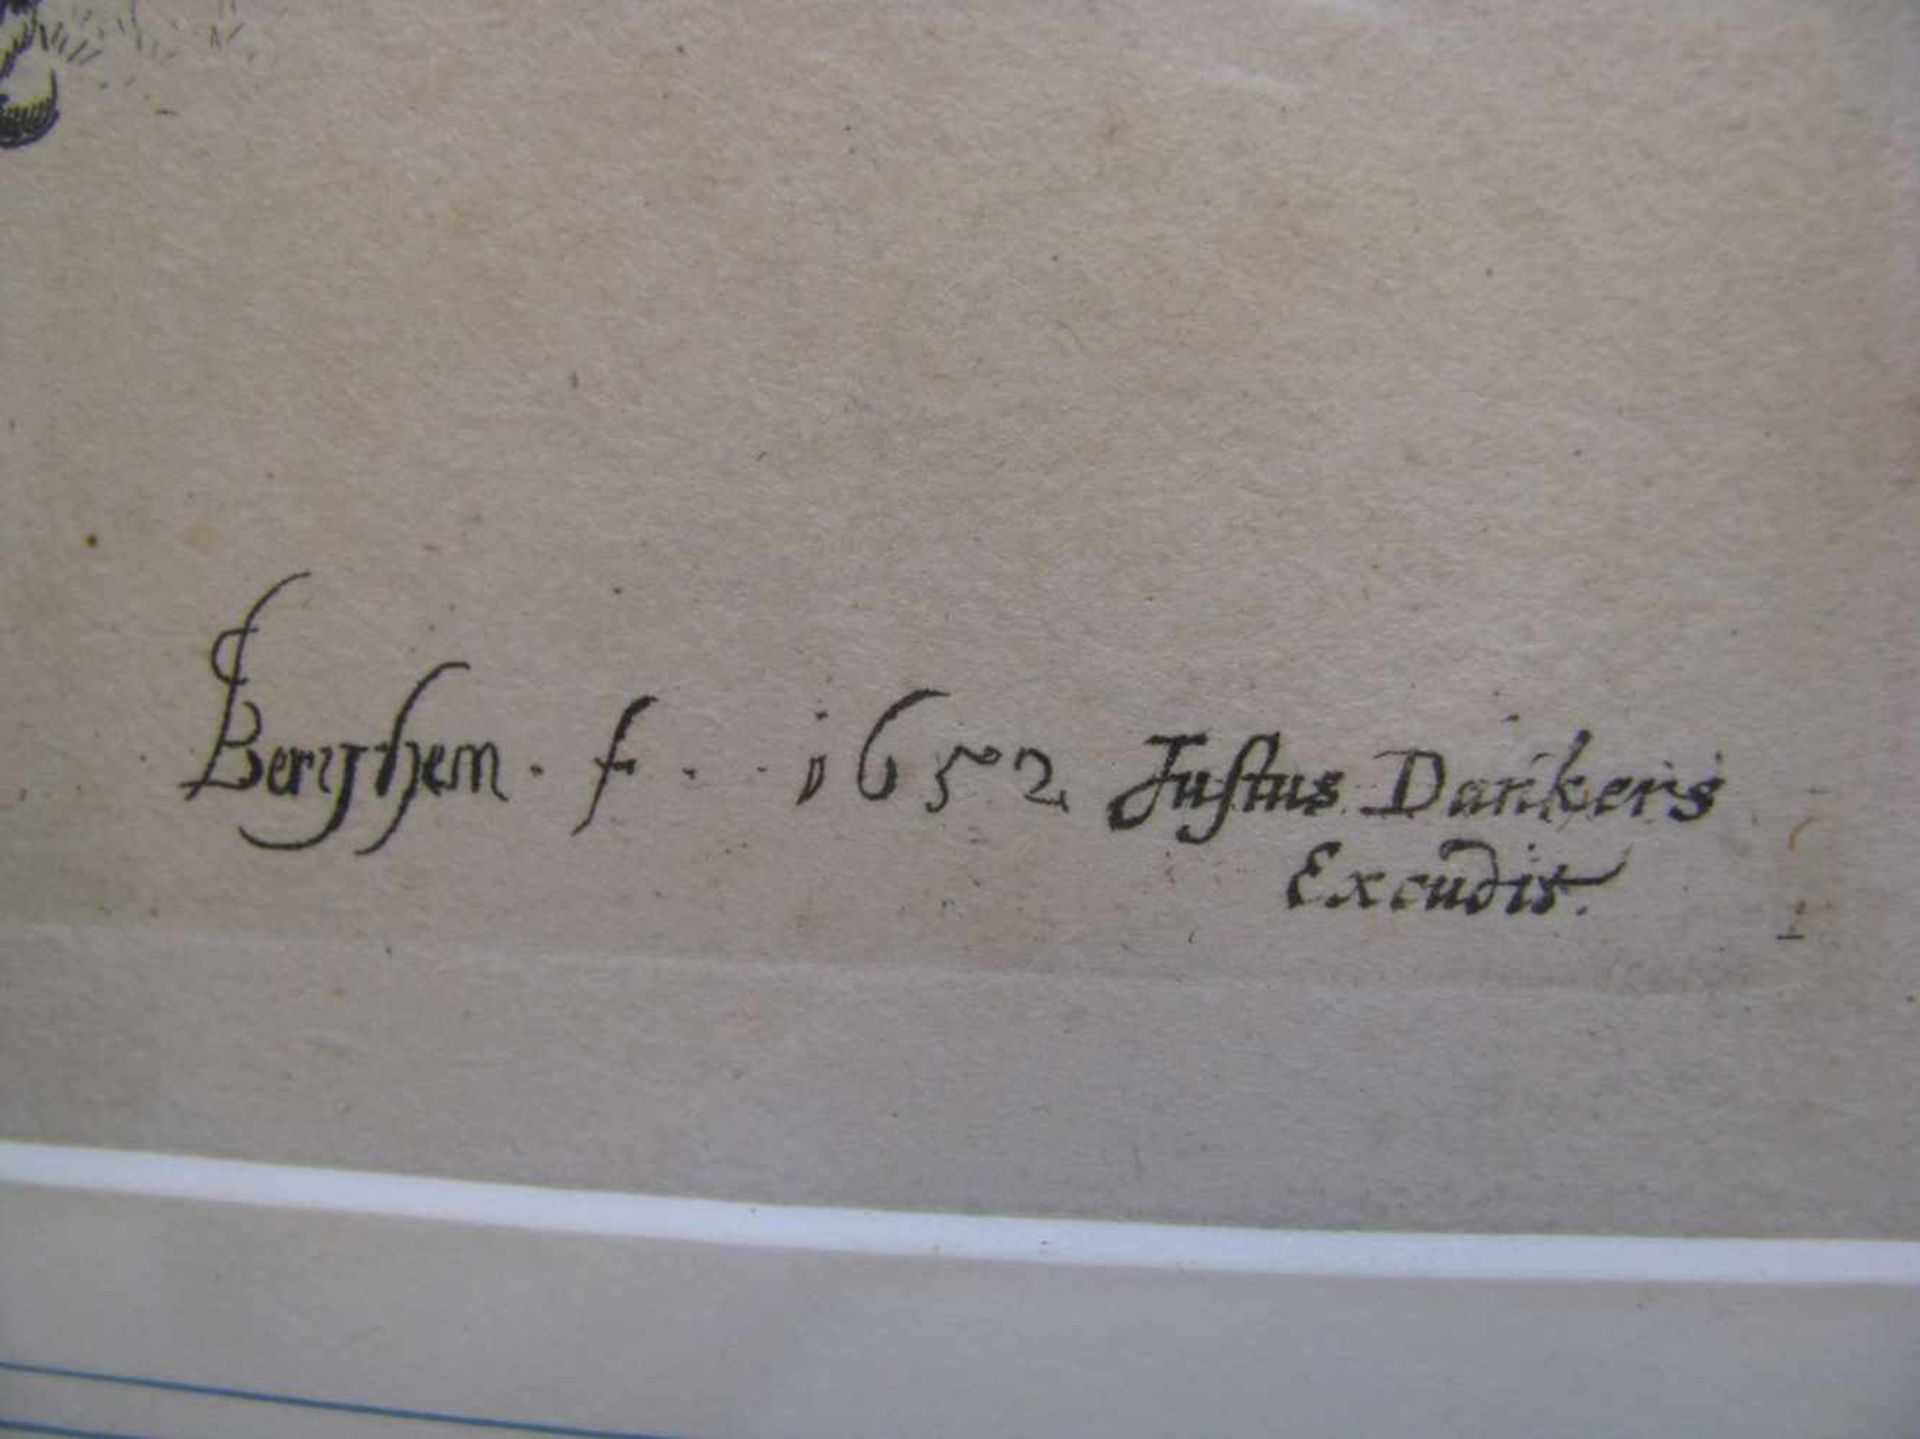 Berghem . f . . 1652 Justus Dankers
Excudit.
1